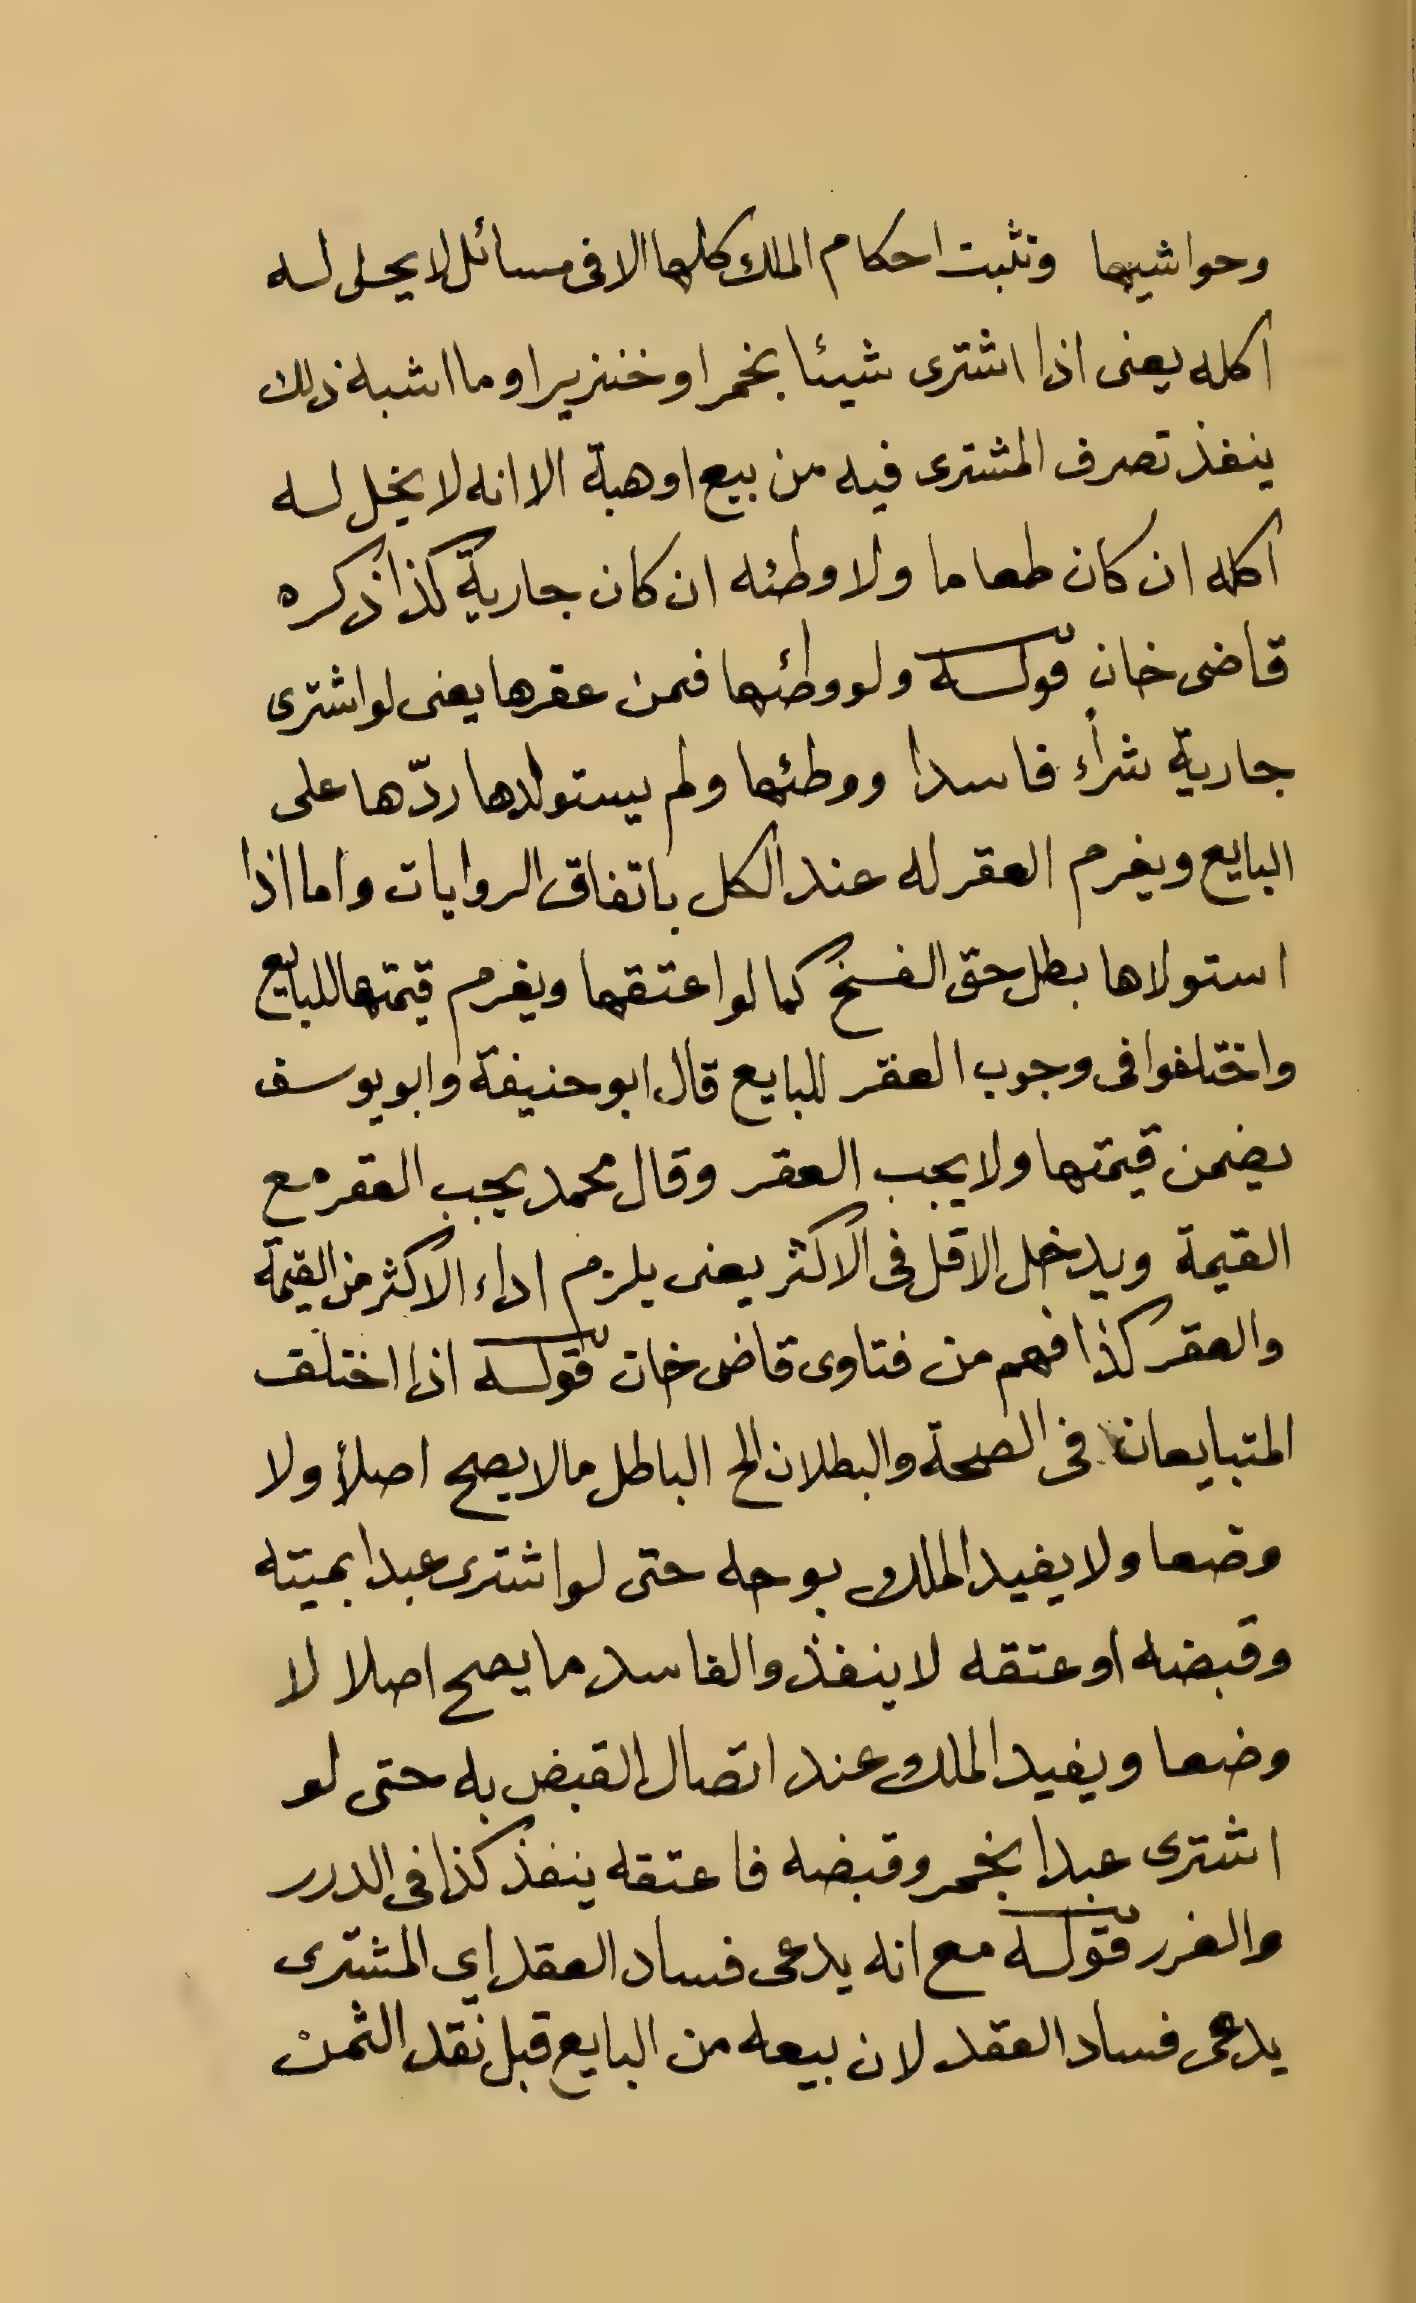 وحواشيها وتثبت احكام الملك كلها الا فى مسائل لا يحل له
اكله يعنى اذا اشترى شيئا بخمر او خنزير او ما اشبه ذلك
ينفذ تصرف المشترى فيه من بيع او هبة الا انه لا يحل له
اكله ان كان طعاما ولا وطئه ان كان جارية كذا ذكره
قاضى خان قوله ولو وطئها فمن عقرها يعنى لو اشترى
جارية شرأء فاسدا ووطئها ولم يستولدها ردّها على
البايع ويغرم العقر له عند الكل باتفاق الروايات واما اذا
استولاها بطل حق الفسخ كما لو اعتقها ويغرم قيمتها للبايع
واختلفوا فى وجوب العقر للبايع قال ابو حنيفة وابو يوسف
يضمن قيمتها ولا يجب العقر وقال محمد يجب العقر مع
القيمة ويدخل الاقل فى الاكثر يعنى يلزم اداء الاكثر من القيمة
والعقر كذا فهم من فتاوى قاضى خان قوله اذا اختلف
المتبايعان فى الصحة والبطلان الخ الباطل مالا يصح اصلاً ولا
وضعا ولا يفيد الملك بوجه حتى لو اشترى عبدا بميتة
وقبضه او عتقه لا ينفذ والفاسد ما يصح اصلا لا
وضعا ويفيد الملك عند اتصال القبض به حتى لو
اشترى عبدا بخمر وقبضه فاعتقه ينفذ كذا فى الدرر
والغرر قوله مع انه يدعى فساد العقد اي المشترى
يدعى فساد العقد لان بيعه من البايع قبل نقد الثمن